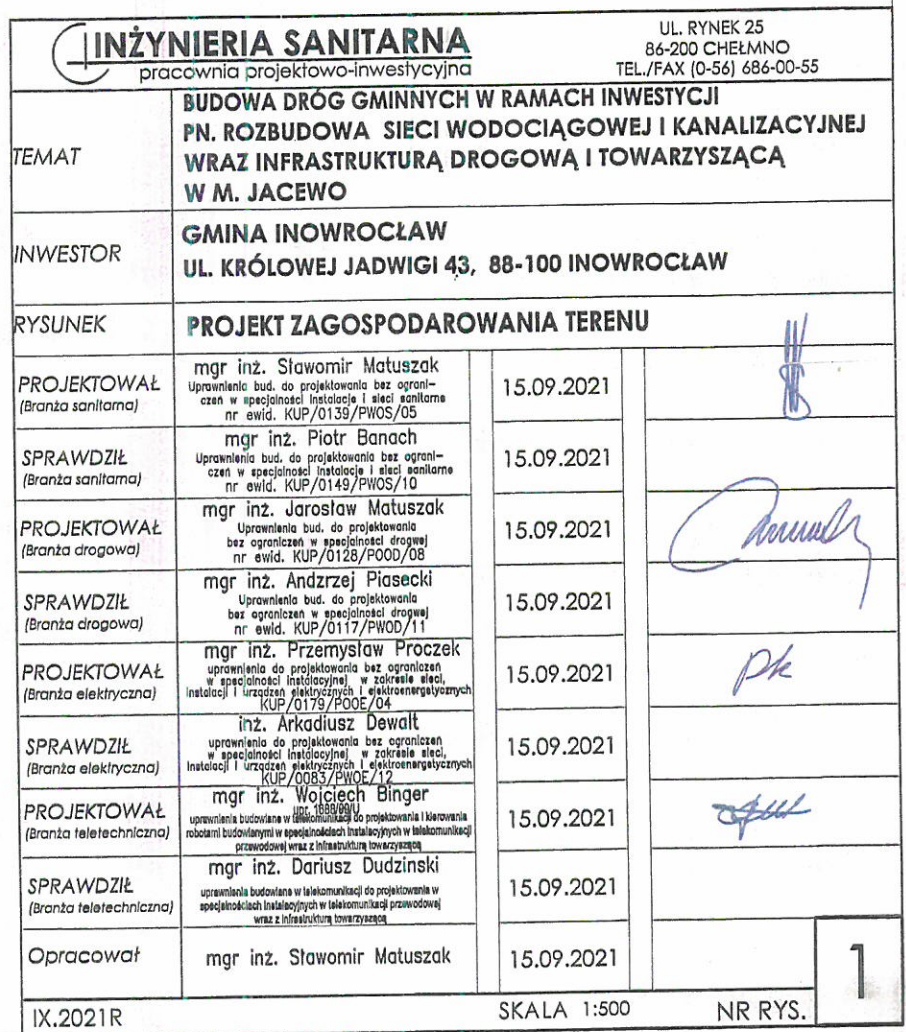 INŻYNIERIA SANITARNA
pracownia projektowo-inwestycyjna
UL. RYNEK 25
86-200 CHEŁMNO
TEL./FAX (0-56) 686-00-55
TEMAT
BUDOWA DRÓG GMINNYCH W RAMACH INWESTYCJI
PN. ROZBUDOWA SIECI WODOCIĄGOWEJ I KANALIZACYJNEJ
WRAZ INFRASTRUKTURĄ DROGOWĄ I TOWARZYSZĄCĄ
W M. JACEWO
INWESTOR
GMINA INOWROCŁAW
UL. KRÓLOWEJ JADWIGI 43, 88-100 INOWROCŁAW
RYSUNEK
PROJEKT ZAGOSPODAROWANIA TERENU
PROJEKTOWAŁ
(Branża sanitarna)
mgr inż. Sławomir Matuszak
Uprawnienia bud. do projektowania bez ograni-
czeń w specjalności instalacje i sieci sanitarne
nr ewid. KUP/0139/PWOS/05
15.09.2021
SPRAWDZIŁ
(Branża sanitarna)
mgr inż. Piotr Banach
Uprawnienia bud. do projektowania bez ograni-
czeń w specjalności instalacje i sieci sanitarne
nr ewid. KUP/0149/PWOS/10
15.09.2021
PROJEKTOWAŁ
(Branża drogowa)
mgr inż. Jarosław Matuszak
Uprawnienia bud. do projektowania
bez ograniczeń w specjalności drogwej
nr ewid. KUP/0128/POOD/08
15.09.2021
SPRAWDZIŁ
(Branża drogowa)
mgr inż. Andzrzej Piasecki
Uprawnienia bud. do projektowania
bez ograniczeń w specjalności drogwej
nr ewid. KUP/0117/PWOD/11
15.09.2021
PROJEKTOWAŁ
(Branża elektryczna)
mgr inż. Przemysław Proczek
uprawnienia do projektowania bez ograniczeń
w specjalności instalacyjnej w zakresie sieci,
instalacji i urządzeń elektrycznych i elektroenergetycznych
KUP/0179/POOE/04
15.09.2021
SPRAWDZIŁ
(Branża elektryczna)
inż. Arkadiusz Dewalt
uprawnienia do projektowania bez ograniczeń
w specjalności instalacyjnej w zakresie sieci,
instalacji i urządzeń elektrycznych i elektroenergetycznych
KUP/0083/PWOE/12
15.09.2021
PROJEKTOWAŁ
(Branża teletechniczna)
mgr inż. Wojciech Binger
upr. 1688/99/U
uprawnienia budowlane w telekomunikacji do projektowania i kierowania
robotami budowlanymi w specjalnościach instalacyjnych w telekomunikacji
przewodowej wraz z infrastrukturą towarzyszącą
15.09.2021
SPRAWDZIŁ
(Branża teletechniczna)
mgr inż. Dariusz Dudzinski
uprawnienia budowlane w telekomunikacji do projektowania w
specjalnościach instalacyjnych w telekomunikacji przewodowej
wraz z infrastrukturą towarzyszącą
15.09.2021
Opracował
mgr inż. Sławomir Matuszak
15.09.2021
IX.2021R
SKALA 1:500
NR RYS.
1